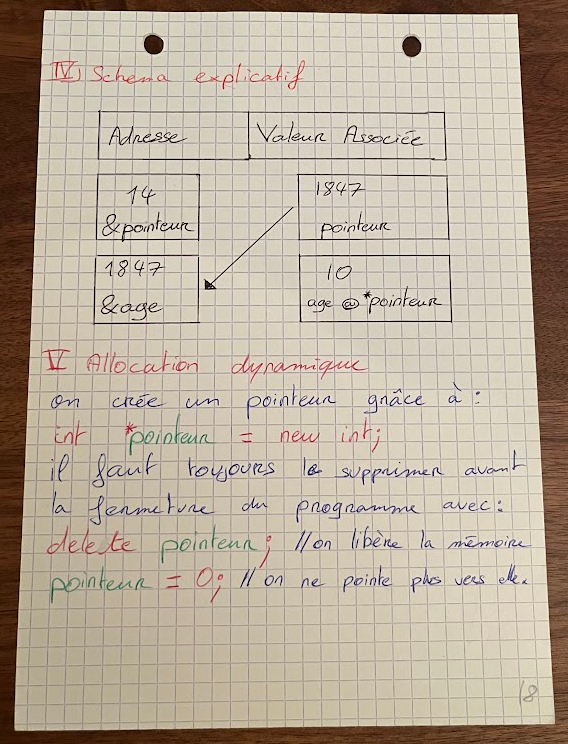 IV) Schema explicatif
Adresse Valeur Associée
14 1847
&pointeur pointeur
1847 10
&age age @ *pointeur
V Allocation dynamique
on crée un pointeur grâce à :
int *pointeur = new int;
il faut toujours le supprimer avant
la fermeture du programme avec:
delete pointeur; // on libère la mémoire
pointeur = 0; // on ne pointe plus vers elle.
18